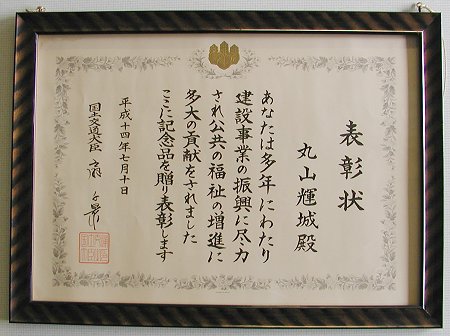 表彰状
丸山輝城殿
あなたは多年にわたり
建設事業の振興に尽力
され公共の福祉の増進に
多大の貢献をされました
ここに記念品を贈り表彰します
平成十四年七月十日
国土交通大臣